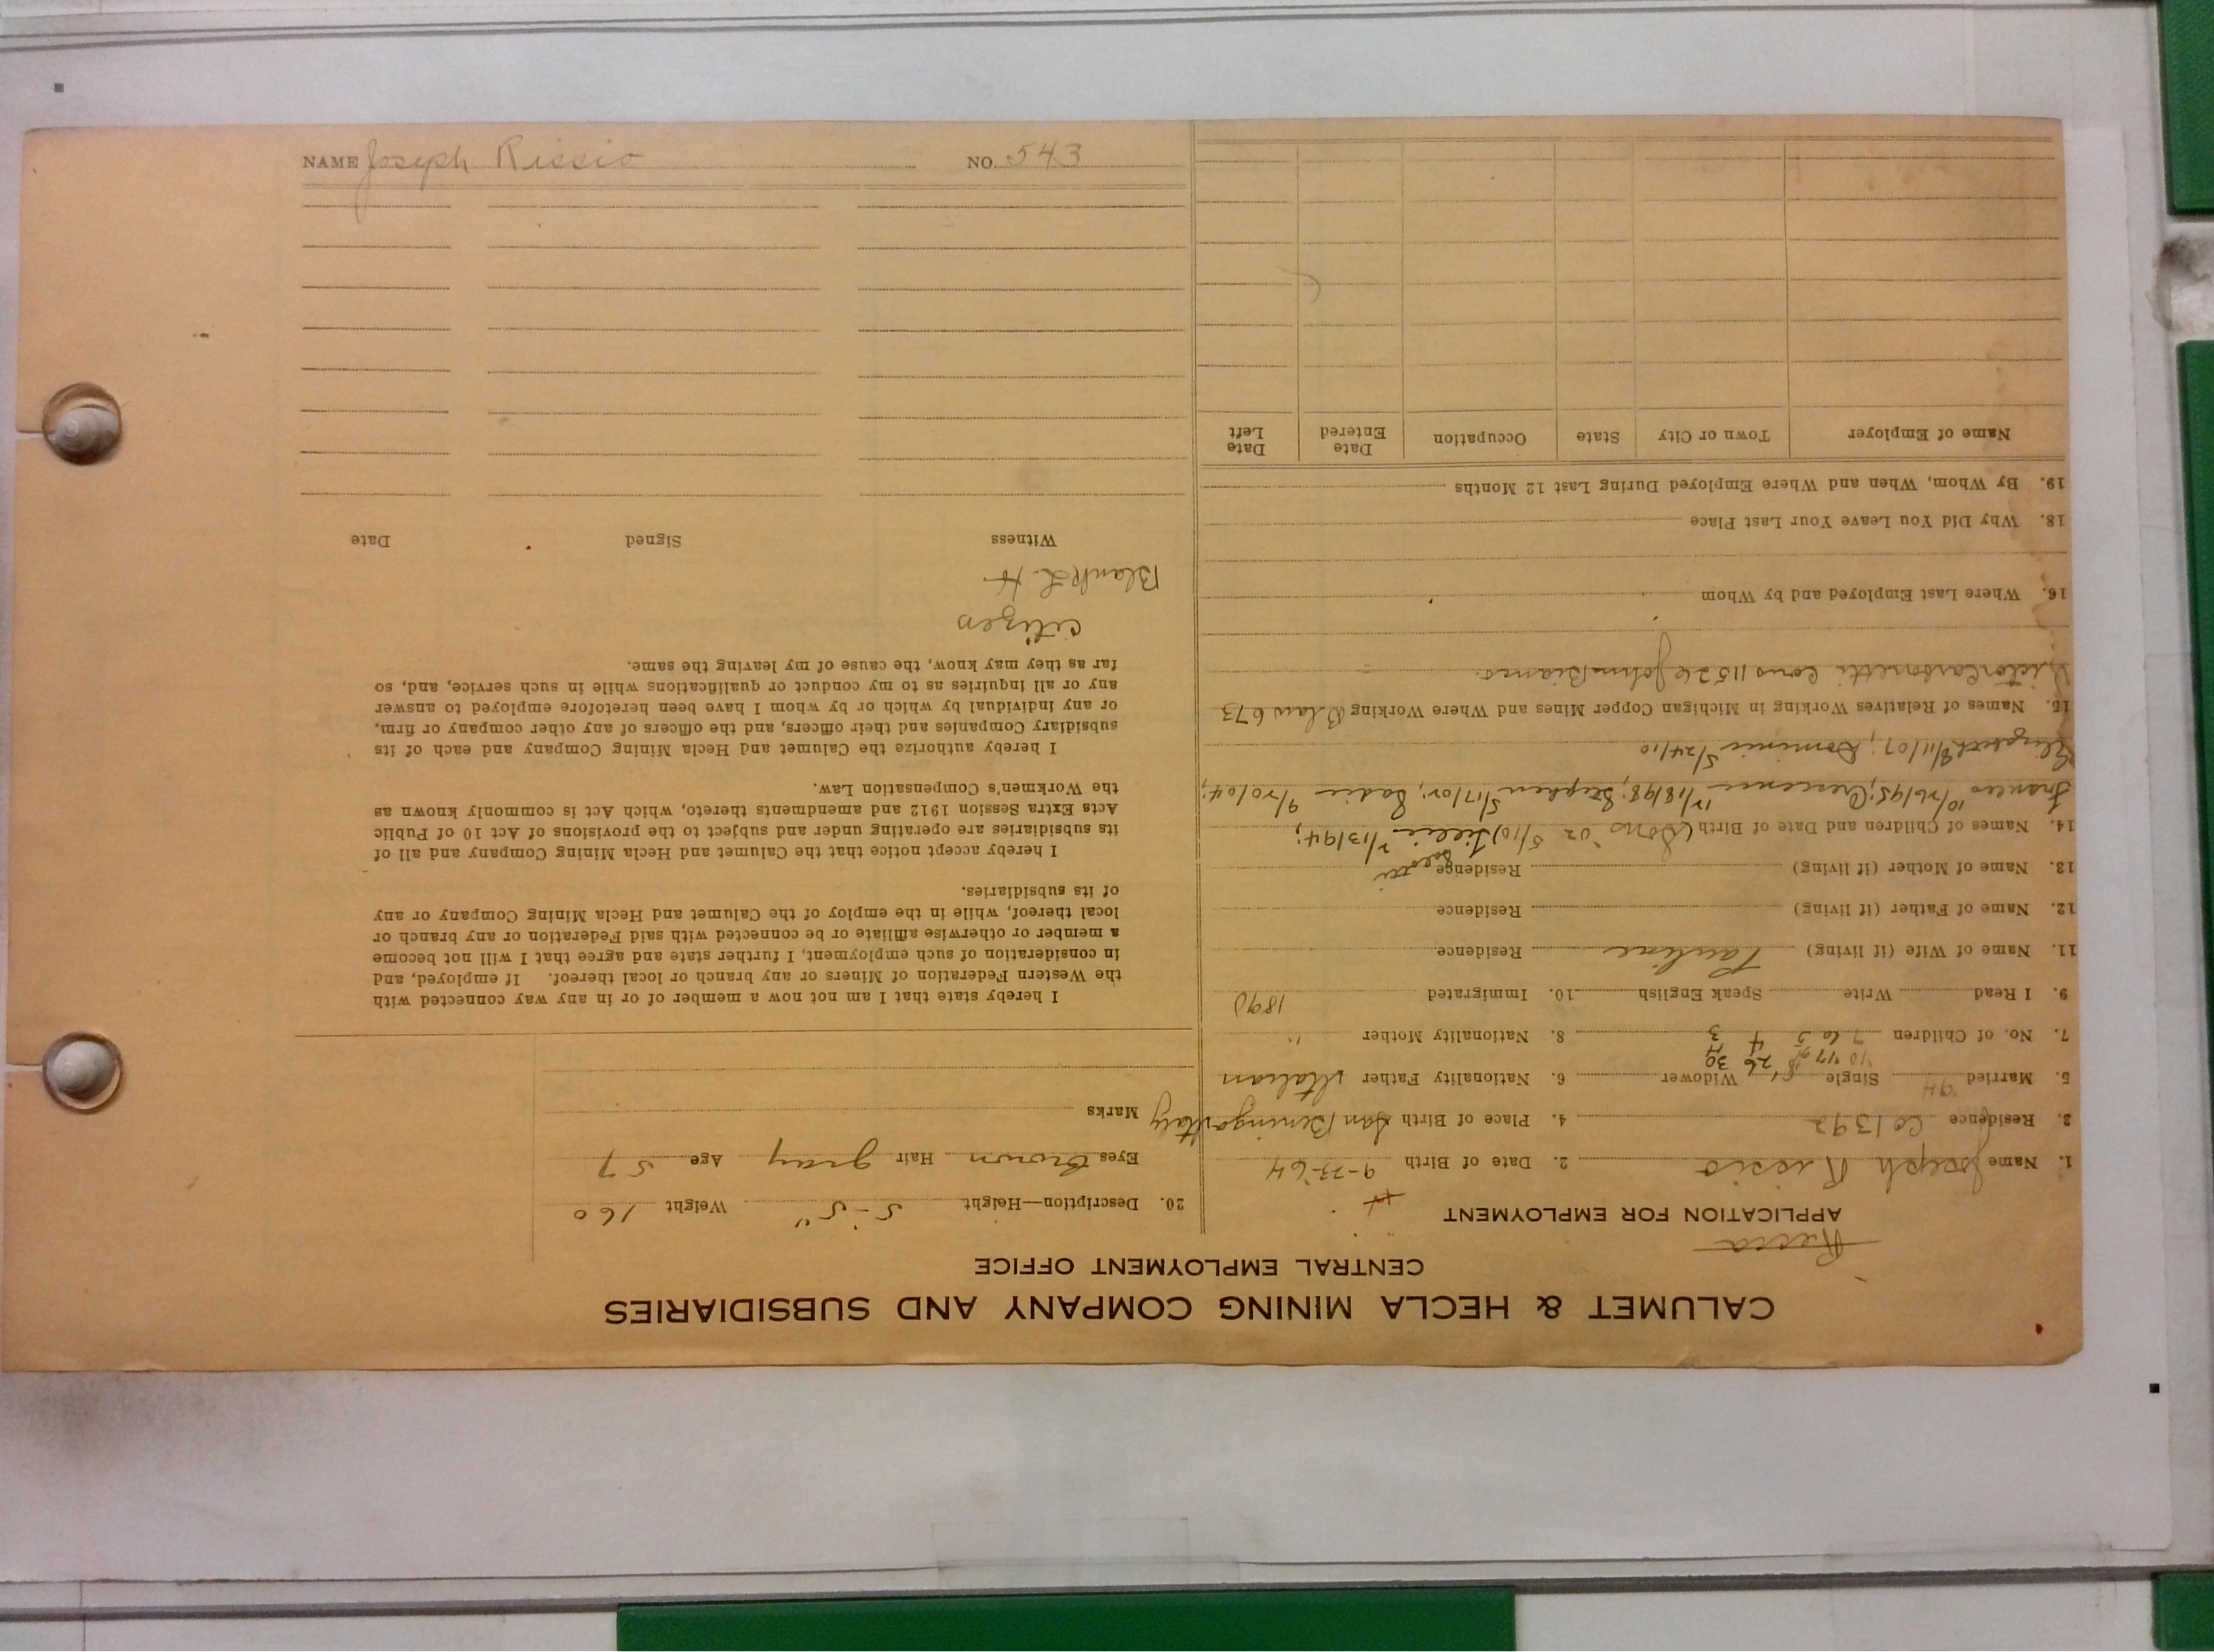 NAME Joseph Rissio NO. 543
CALUMET & HECLA MINING COMPANY AND SUBSIDIARIES
CENTRAL EMPLOYMENT OFFICE
APPLICATION FOR EMPLOYMENT
1. Name Joseph Rissio 2. Date of Birth 9-23-64
3. Residence Co 1392 4. Place of Birth San Beningo Italy
5. Married 94 Single Widower 6. Nationality Father Italian
7. No. of Children 8. Nationality Mother "
9. I Read Write Speak English 10. Immigrated 1890
11. Name of Wife (if living) Pauline Residence
12. Name of Father (if living) Residence
13. Name of Mother (if living) Residence
14. Names of Children and Date of Birth
Frances 10/26/95; 12/18/98; Stephen Sadie 9/20/04;
8/11/07; Dominic 5/24/10
15. Names of Relatives Working in Michigan Copper Mines and Where Working B law 673
Victor Cons 11526 John
16. Where Last Employed and by Whom
18. Why Did You Leave Your Last Place
19. By Whom, When and Where Employed During Last 12 Months
Name of Employer Town or City State Occupation Date Entered Date Left
20. Description—Height 5'-5" Weight 160
Eyes Brown Hair gray Age 57
Marks
I hereby state that I am not now a member of or in any way connected with
the Western Federation of Miners or any branch or local thereof. If employed, and
in consideration of such employment, I further state and agree that I will not become
a member or otherwise affiliate or be connected with said Federation or any branch or
local thereof, while in the employ of the Calumet and Hecla Mining Company or any
of its subsidiaries.
I hereby accept notice that the Calumet and Hecla Mining Company and all of
its subsidiaries are operating under and subject to the provisions of Act 10 of Public
Acts Extra Session 1912 and amendments thereto, which Act is commonly known as
the Workmen's Compensation Law.
I hereby authorize the Calumet and Hecla Mining Company and each of its
subsidiary Companies and their officers, and the officers of any other company or firm,
or any individual by which or by whom I have been heretofore employed to answer
any or all inquiries as to my conduct or qualifications while in such service, and, so
far as they may know, the cause of my leaving the same.
Citizen
Witness Signed Date